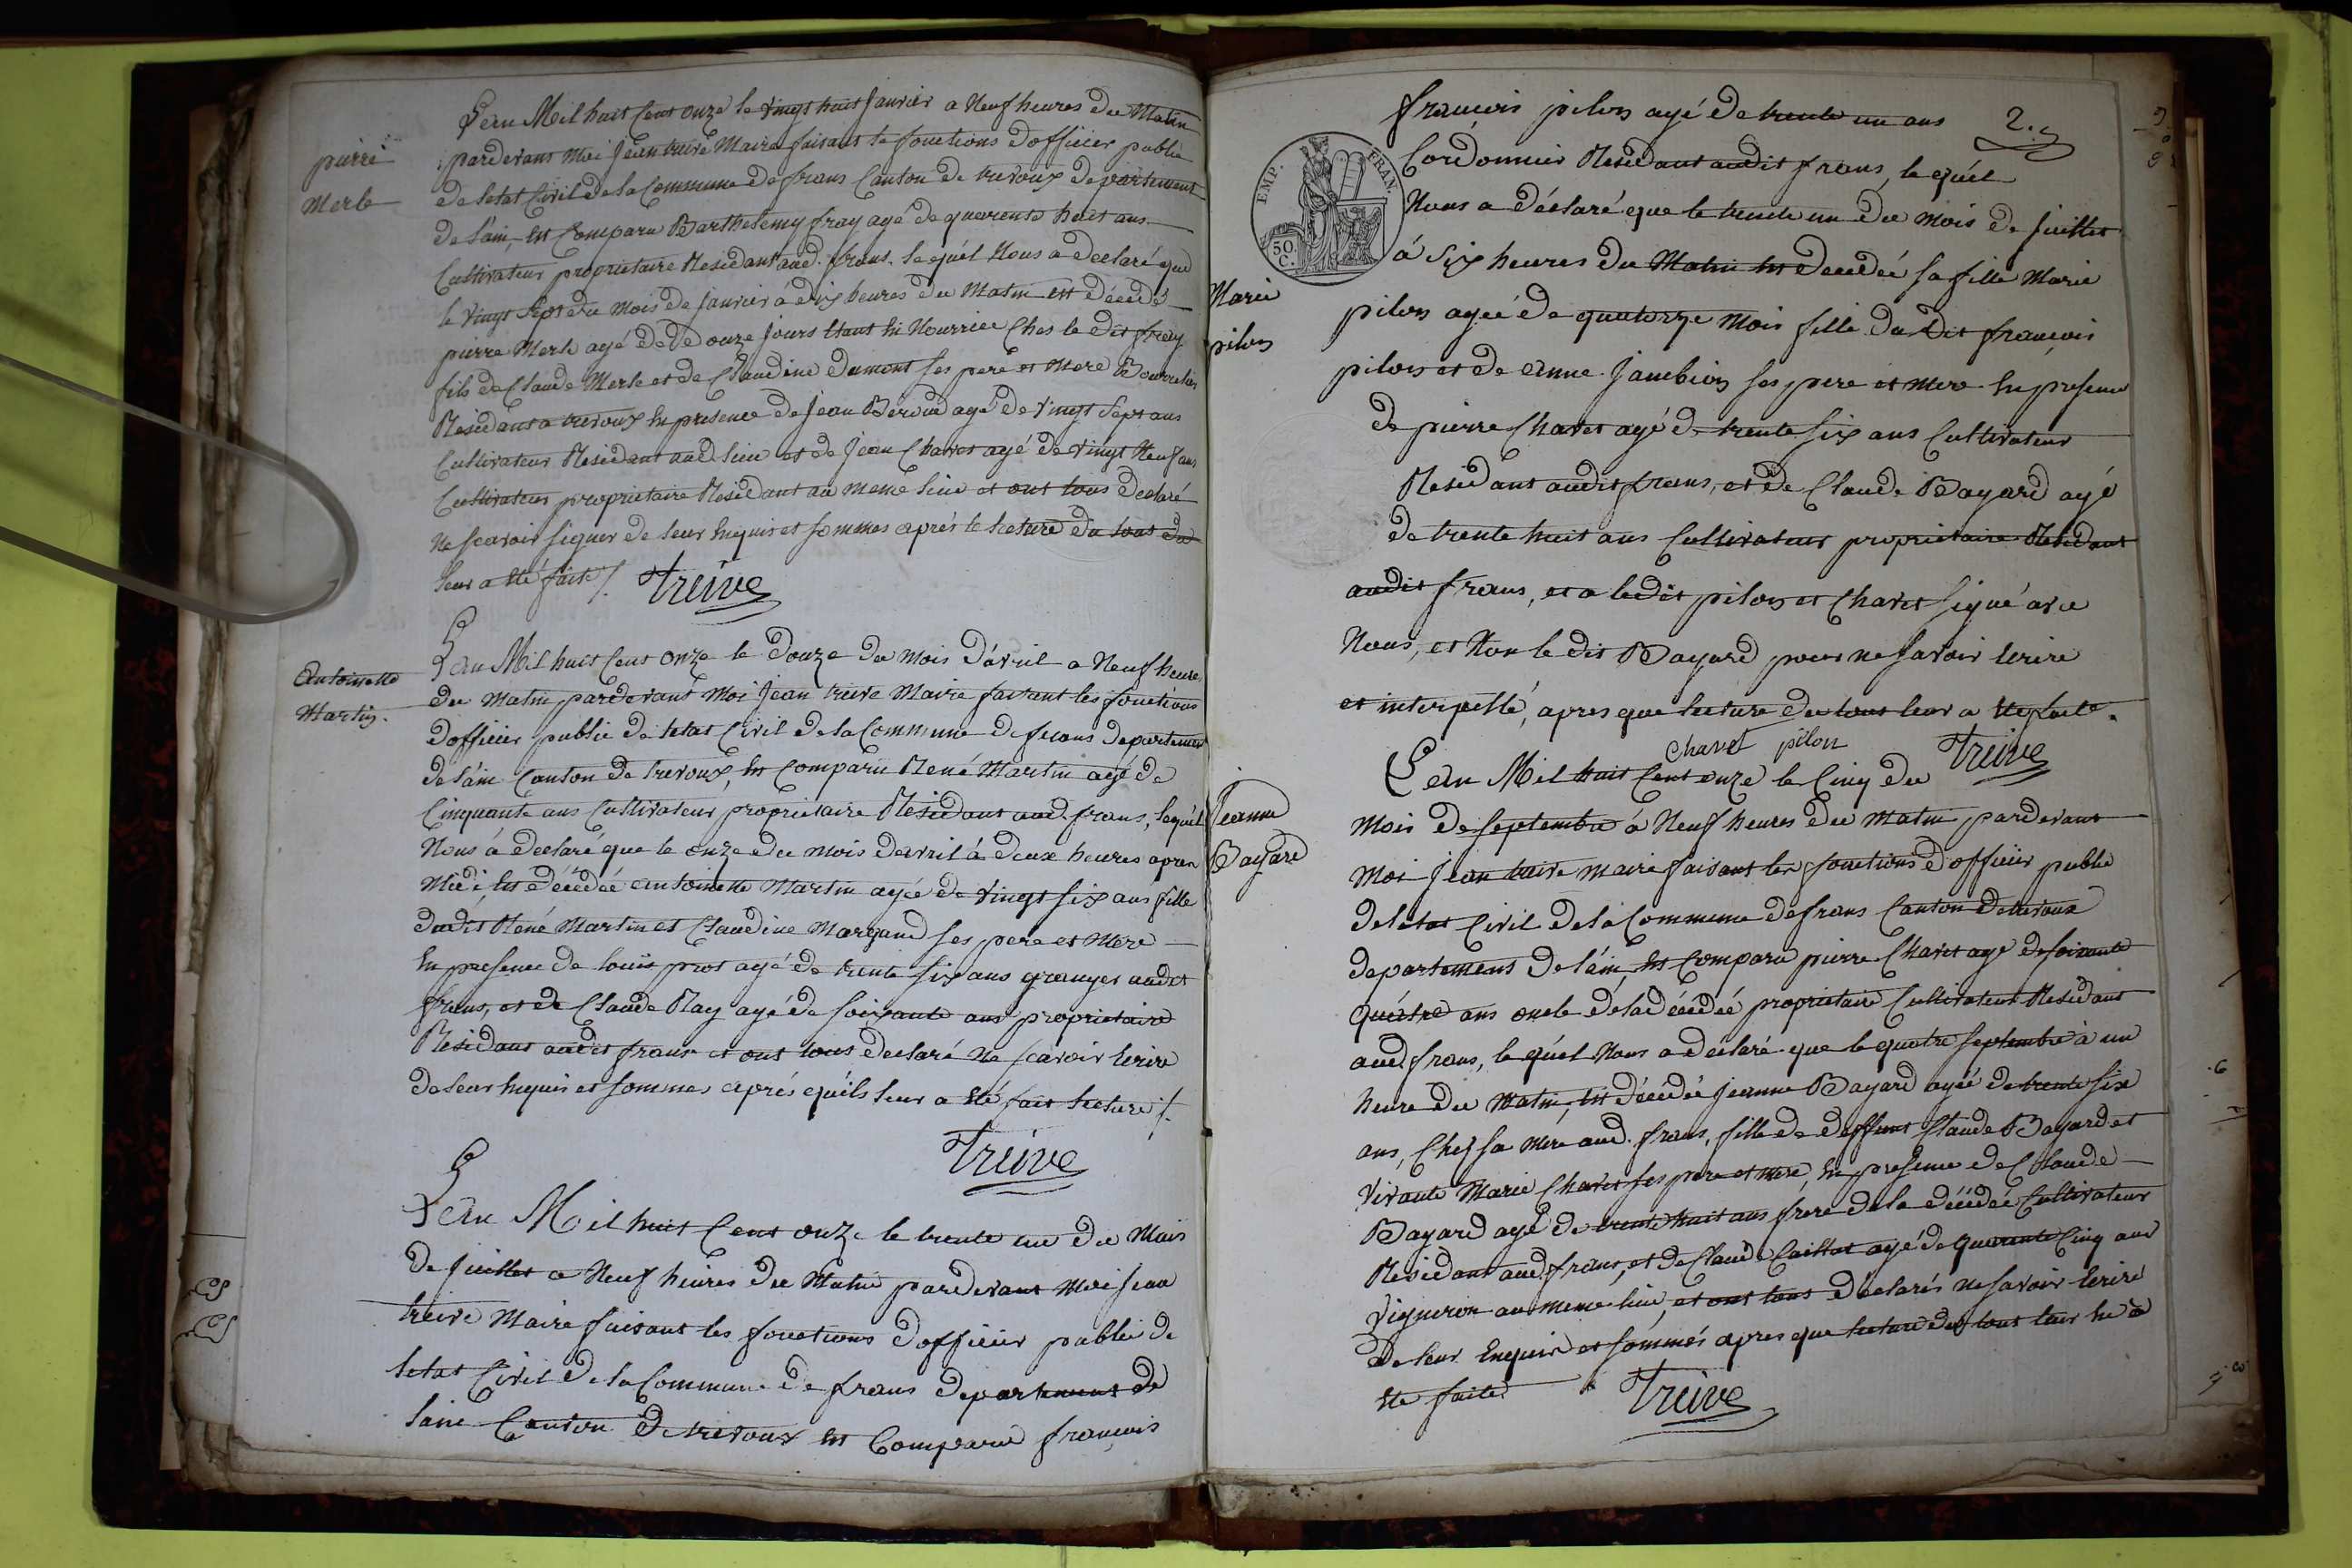 pierre
Merle
L'an Mil huit Cent onze le vingt huit Janvier a Neuf heures du Matin
pardevant moi Jean treive Maire faisant le fonctions d'officier public
de letat Civil de la Commune de frans Canton de trevoux departement
de L'ain, Est Comparu Barthelemy fray agé de quarente huit ans
Cultivateur proprietaire Residant aud. frans. lequél Nous a declaré que
le vingt Sept du mois de janvier á dix heures du Matin est décedé
pierre Merle agé de de douze jours Etant En Nourrice Ches le dit fray
fils de Claude Merle et de Claudine dumont ses peré et Mere
Residant a trevoux En presence de Jean Beroud agé de vingt Sept ans
Cultivateur Residant aud. lieu et de Jean Chavet agé de vingt Neuf ans
Cultivateur proprietaire Residant au meme lieu et ont tous declaré
Ne scavoir signer de leur Enquis et sommes aprés le lecture du tout
leur a Eté faite /. Treive
Antoinette
Martin.
L'an Mil huit Cent Onze le Douze du mois D'avril a Neuf heures
du Matin pardevant Moi Jean treive Maire faisant les fonctions
d'officier public de letat Civil de la Commune de frans departement
de l'ain Canton de trevoux, Est Comparu René Martin agé de
Cinquante ans Cultivateur proprietaire Residant aud. frans, lequél
Nous á declaré que le onze du mois davril á deux heures apres
Midi Est décedée antoinette Martin agée de vingt six ans fille
dudit René Martin et Claudine Margand ses pere et Mere
En presence de louis prost agé de trente six ans granger audit
frans, et de Claude Ray agé de soixante ans proprietaire
Residant audit frans et ont tous declaré Ne scavoir Ecrire
de leur Enquis et sommes aprés quéils leur a Eté fait lecture /.
Treive
L'an Mil huit Cent onze le trente un du Mois
de Juillet a Neuf heures du Matin pardevant Moi Jean
treive Maire faisant les fonctions D'officier public de
letat Civil de la Commune de frans departement de
lain Canton de trevoux Est Comparu françois
2.
françois pilon agé de trente un ans
Cordonnier Residant audit frans, le quél
Nous a déclaré que le trente un du mois de Juillet
á Six heures du Matin Est decedée sa fille Marie
pilon agée de quatorze Mois fille du Dit françois
pilon et de Anne Jambion ses pere et mere En presence
de pierre Chavet agé de trente six ans Cultivateur
Residant audit frans, et de Claude Bayard agé
de trente huit ans Cultivateur proprietaire Residant
audit frans, et a ledit pilon et Chavet signé avec
Nous, et Non le dit Bayard pour ne savoir Ecrire
et interpellé, apres que lecture du tout leur a Eté faite.
Chavet pilon Treive
EMP. FRAN.
50 C.
Marie
pilon
Jeanne
Bayard
L'an Mil huit Cent onze le Cinq du
mois de septembre á Neuf heures du matin pardevant
Moi Jean treive maire faisant les fonctions d'officier public
de letat Civil de la Commune de frans Canton de trevoux
departement de l'ain, Est Comparu pierre Chavet agé de soixante
quatre ans oncle de la décédée proprietaire Cultivateur Residant
aud. frans, le quél Nous a déclaré que le quatre septembre à un
heure du Matin, Est décédée jeanne Bayard agée de trente six
ans, Chez sa mere aud. frans, fille de deffunt Claude Bayard et
vivante Marie Chavet ses pere et mere, En presence de Claude
Bayard agé de trente huit ans frere de la décédée Cultivateur
Residant aud. frans, et de Claude Caillat agé de quarente Cinq ans
vigneron au meme lieu, et ont tous déclarés ne savoir Ecrire
de leur Enquis et sommés apres que lecture du tout leur
Eté faite. Treive